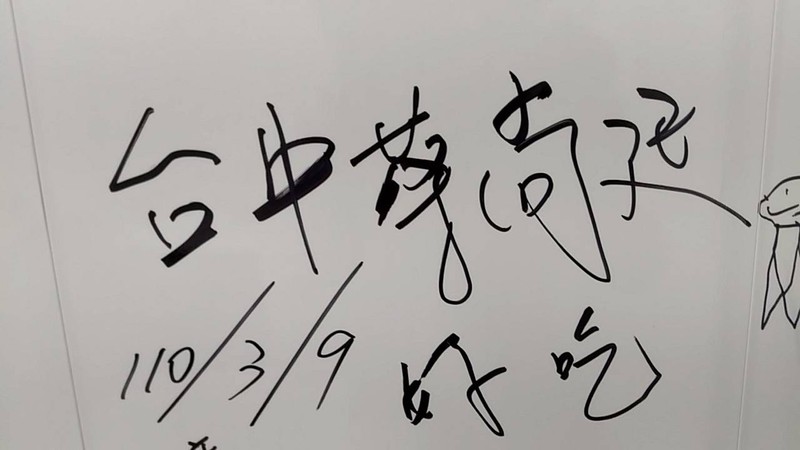 台中黃尚廷
110/3/9 好吃